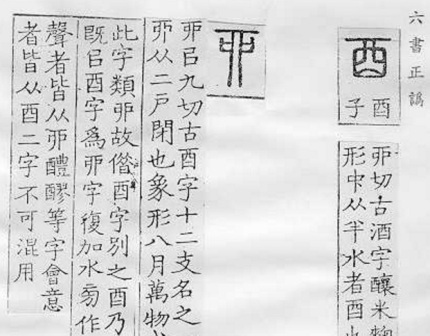 六書正譌
酉
酉子
丣切古酒字釀米麴
形中从半水者酉
丣
丣㠯九切古酉字十二支名之
丣从二戶閉也象形八月萬物
此字類丣故偺酉字別之酉乃
既㠯酉字爲丣字復加水旁作
聲者皆从丣醴醪等字會意
者皆从酉二字不可混用